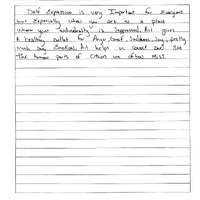 Self Expression is very Important for Everyone
but Especially when you are in a place
where your individuality is Suppressed. Art gives
A healthy outlet for Anger, Grief, Sadness, Joy, pretty
much any Emotion. Art helps us connect and see
the human parts of Others we often Miss.